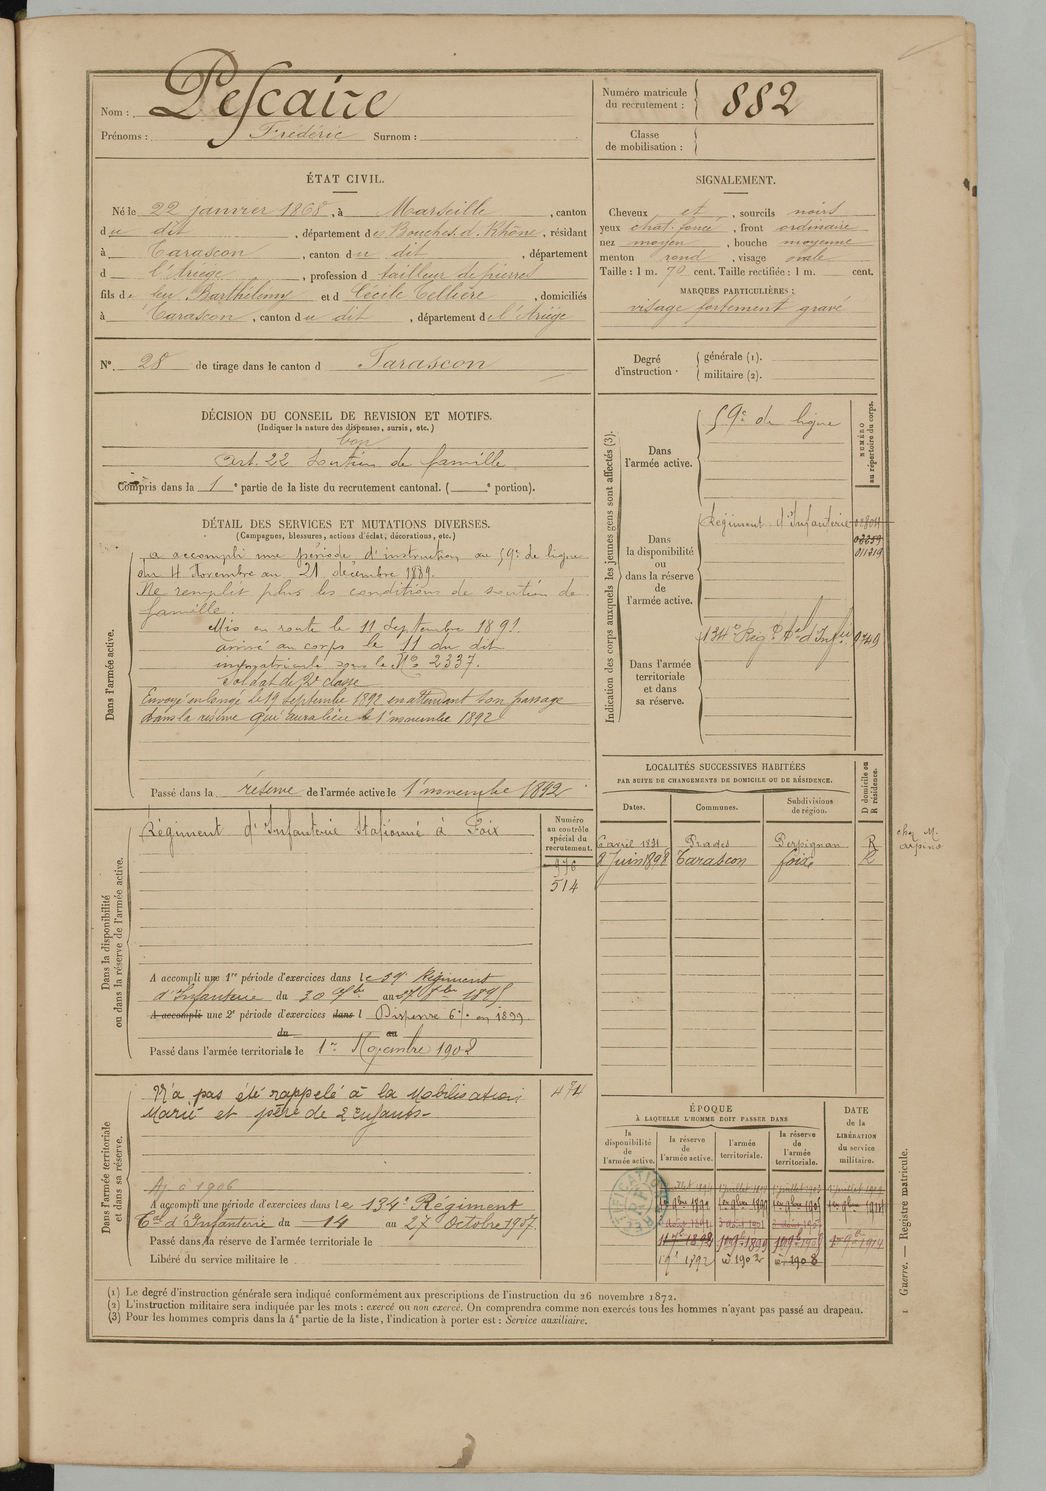 Nom : Pescaire
Prénoms : Frédéric Surnom :
Numéro matricule du recrutement : 882
Classe de mobilisation :
ÉTAT CIVIL.
Né le 22 janvier 1868, à Marseille, canton
du dit, département des Bouches d. Rhône, résidant
à Tarascon, canton du dit, département
d l'Ariège, profession d tailleur de pierres
fils de feu Barthélémy et d Cécile Tellière, domiciliés
à Tarascon, canton du dit, département de l'Ariège
N° 28 de tirage dans le canton d Tarascon
SIGNALEMENT.
Cheveux et, sourcils noirs
yeux chat. foncé, front ordinaire
nez moyen, bouche moyenne
menton rond, visage ovale
Taille : 1 m. 70 cent. Taille rectifiée : 1 m. cent.
MARQUES PARTICULIÈRES :
visage fortement gravé
Degré d'instruction
générale (1).
militaire (2).
DÉCISION DU CONSEIL DE REVISION ET MOTIFS.
(Indiquer la nature des dispenses, sursis, etc.)
bon
Art. 22 Soutien de famille
Compris dans la 1e partie de la liste du recrutement cantonal. ( e portion).
DÉTAIL DES SERVICES ET MUTATIONS DIVERSES.
(Campagnes, blessures, actions d'éclat, décorations, etc.)
Dans l'armée active.
a accompli une période d'instruction au 59e de ligne
du 4 Novembre au 21 décembre 1889.
Ne remplit plus les conditions de soutien de
famille.
Mis en route le 11 Septembre 1891.
arrivé au corps le 11 du dit
immatriculé sous le N° 2337.
Soldat de 2e classe
Envoyé en congé le 19 septembre 1892 en attendant son passage
dans la réserve qui aura lieu le 1er novembre 1892
Passé dans la réserve de l'armée active le 1er novembre 1892
Indication des corps auxquels les jeunes gens sont affectés (3).
NUMÉRO au répertoire du corps.
Dans l'armée active.
59e de ligne
Dans la disponibilité ou dans la réserve de l'armée active.
Régiment d'Infanterie
011219
Dans l'armée territoriale et dans sa réserve.
134e Rég. t Tal d'Infie 9749
LOCALITÉS SUCCESSIVES HABITÉES
PAR SUITE DE CHANGEMENTS DE DOMICILE OU DE RÉSIDENCE.
Dates. Communes. Subdivisions de région. D domicile ou R résidence.
6 avril 1891 Prades Perpignan R
8 Juin 1898 Tarascon foix R
chez M.
Dans la disponibilité ou dans la réserve de l'armée active.
Régiment d'Infanterie Stationné à Foix
Numéro au contrôle spécial du recrutement.
976
514
A accompli une 1re période d'exercices dans le 59e Régiment
d'Infanterie du 30 7bre au 27 8bre 1895
A accompli une 2e période d'exercices dans l Dispense 6% en 1899
du au
Passé dans l'armée territoriale le 1er Novembre 1902
Dans l'armée territoriale et dans sa réserve.
N'a pas été rappelé à la Mobilisation, 474
Marié et père de 2 enfants-
Aj. à 1906
A accompli une période d'exercices dans le 134e Régiment
Tal d'Infanterie du 14 au 27 Octobre 1907.
Passé dans la réserve de l'armée territoriale le
Libéré du service militaire le
ÉPOQUE
À LAQUELLE L'HOMME DOIT PASSER DANS
la disponibilité de l'armée active. la réserve de l'armée active. l'armée territoriale. la réserve de l'armée territoriale.
DATE de la LIBÉRATION du service militaire.
1er 9bre 1892 1er 9bre 1899 1er 9bre 1905 1er 9bre 1914
1 9e 1892 d° 1902 d° 1908
RECTIFICATION
(1) Le degré d'instruction générale sera indiqué conformément aux prescriptions de l'instruction du 26 novembre 1872.
(2) L'instruction militaire sera indiquée par les mots : exercé ou non exercé. On comprendra comme non exercés tous les hommes n'ayant pas passé au drapeau.
(3) Pour les hommes compris dans la 4e partie de la liste, l'indication à porter est : Service auxiliaire.
1 Guerre. — Registre matricule.